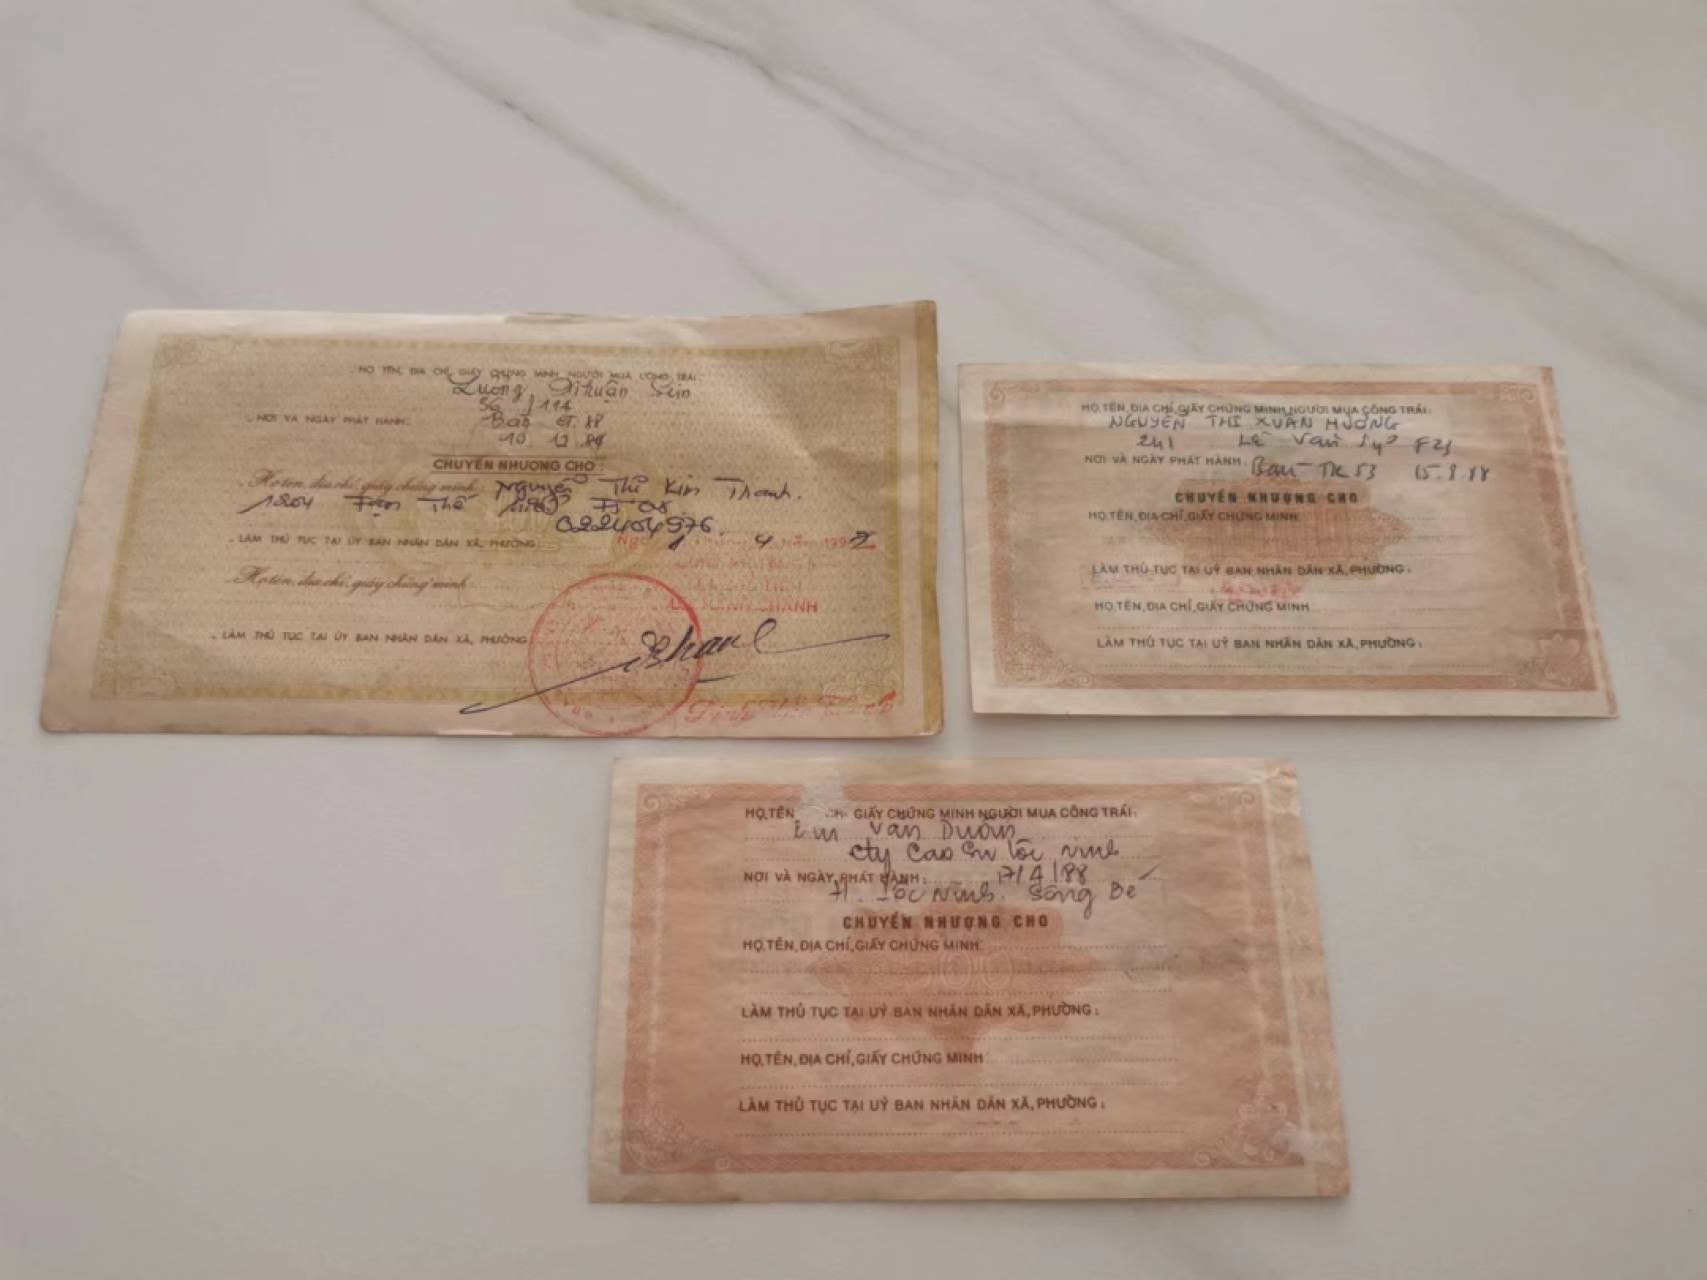 HỌ TÊN, ĐỊA CHỈ, GIẤY CHỨNG MINH NGƯỜI MUA CÔNG TRÁI:
Lương Thuận Sen
114
NƠI VÀ NGÀY PHÁT HÀNH:
10 12 84
CHUYỂN NHƯỢNG CHO:
Họ tên, địa chỉ, giấy chứng minh: Nguyễn Thị Kim Thanh.
022404976
LÀM THỦ TỤC TẠI ỦY BAN NHÂN DÂN XÃ, PHƯỜNG:
Họ tên, địa chỉ, giấy chứng minh
LÀM THỦ TỤC TẠI ỦY BAN NHÂN DÂN XÃ, PHƯỜNG
HỌ,TÊN,ĐỊA CHỈ,GIẤY CHỨNG MINH NGƯỜI MUA CÔNG TRÁI:
NGUYỄN THỊ XUÂN HƯƠNG
241 Lê Văn Sỹ F21
NƠI VÀ NGÀY PHÁT HÀNH: Ban TK 53 15.8.88
CHUYỂN NHƯỢNG CHO
HỌ,TÊN,ĐỊA CHỈ,GIẤY CHỨNG MINH:
LÀM THỦ TỤC TẠI UỶ BAN NHÂN DÂN XÃ,PHƯỜNG:
HỌ,TÊN,ĐỊA CHỈ,GIẤY CHỨNG MINH
LÀM THỦ TỤC TẠI UỶ BAN NHÂN DÂN XÃ,PHƯỜNG:
HỌ,TÊN GIẤY CHỨNG MINH NGƯỜI MUA CÔNG TRÁI:
Văn
Cty Cao Su Lộc Ninh
NƠI VÀ NGÀY PHÁT HÀNH: 17/4/88
H. Lộc Ninh. Sông Bé
CHUYỂN NHƯỢNG CHO
HỌ,TÊN,ĐỊA CHỈ,GIẤY CHỨNG MINH:
LÀM THỦ TỤC TẠI UỶ BAN NHÂN DÂN XÃ,PHƯỜNG:
HỌ,TÊN,ĐỊA CHỈ,GIẤY CHỨNG MINH
LÀM THỦ TỤC TẠI UỶ BAN NHÂN DÂN XÃ,PHƯỜNG: